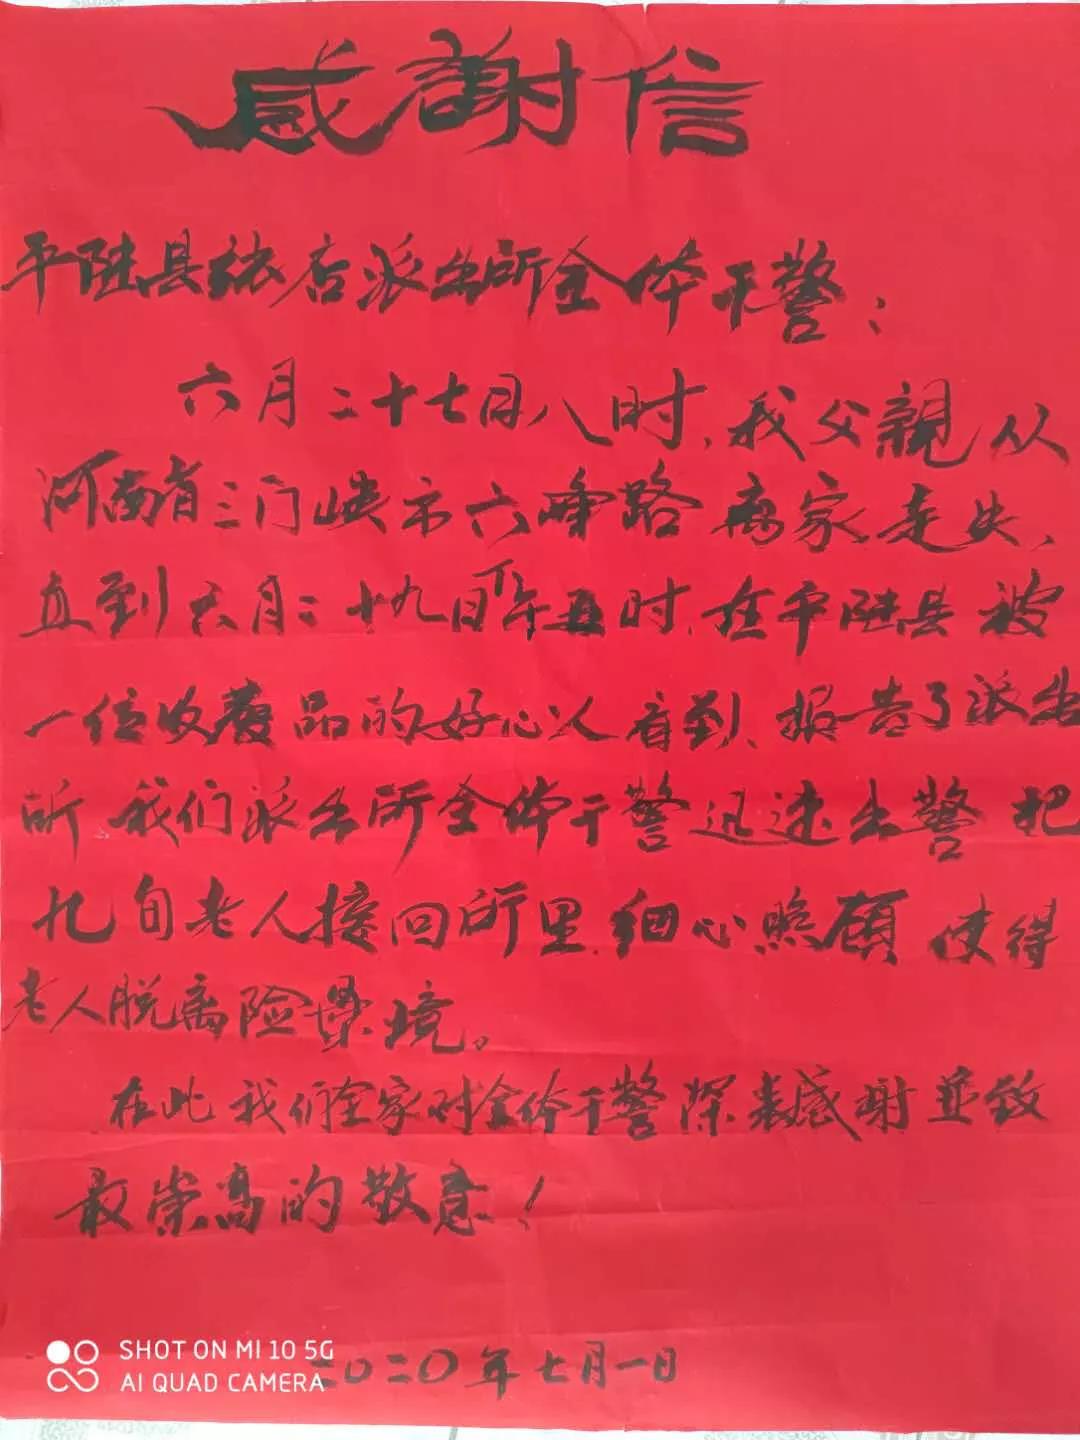 感謝信
平陆县张店派出所全体干警：
六月二十七日八时，我父親从
河南省三门峡市六峰路离家走失、
直到六月二十九日下午五时，在平陆县被
一位收廢品的好心人看到、报告了派出
所，我们派出所全体干警迅速出警把
九旬老人接回所里，细心照顾使得
老人脱离险境。
在此我们全家对全体干警深表感谢並致
最崇高的敬意！
二〇二〇年七月一日
SHOT ON MI 10 5G
AI QUAD CAMERA